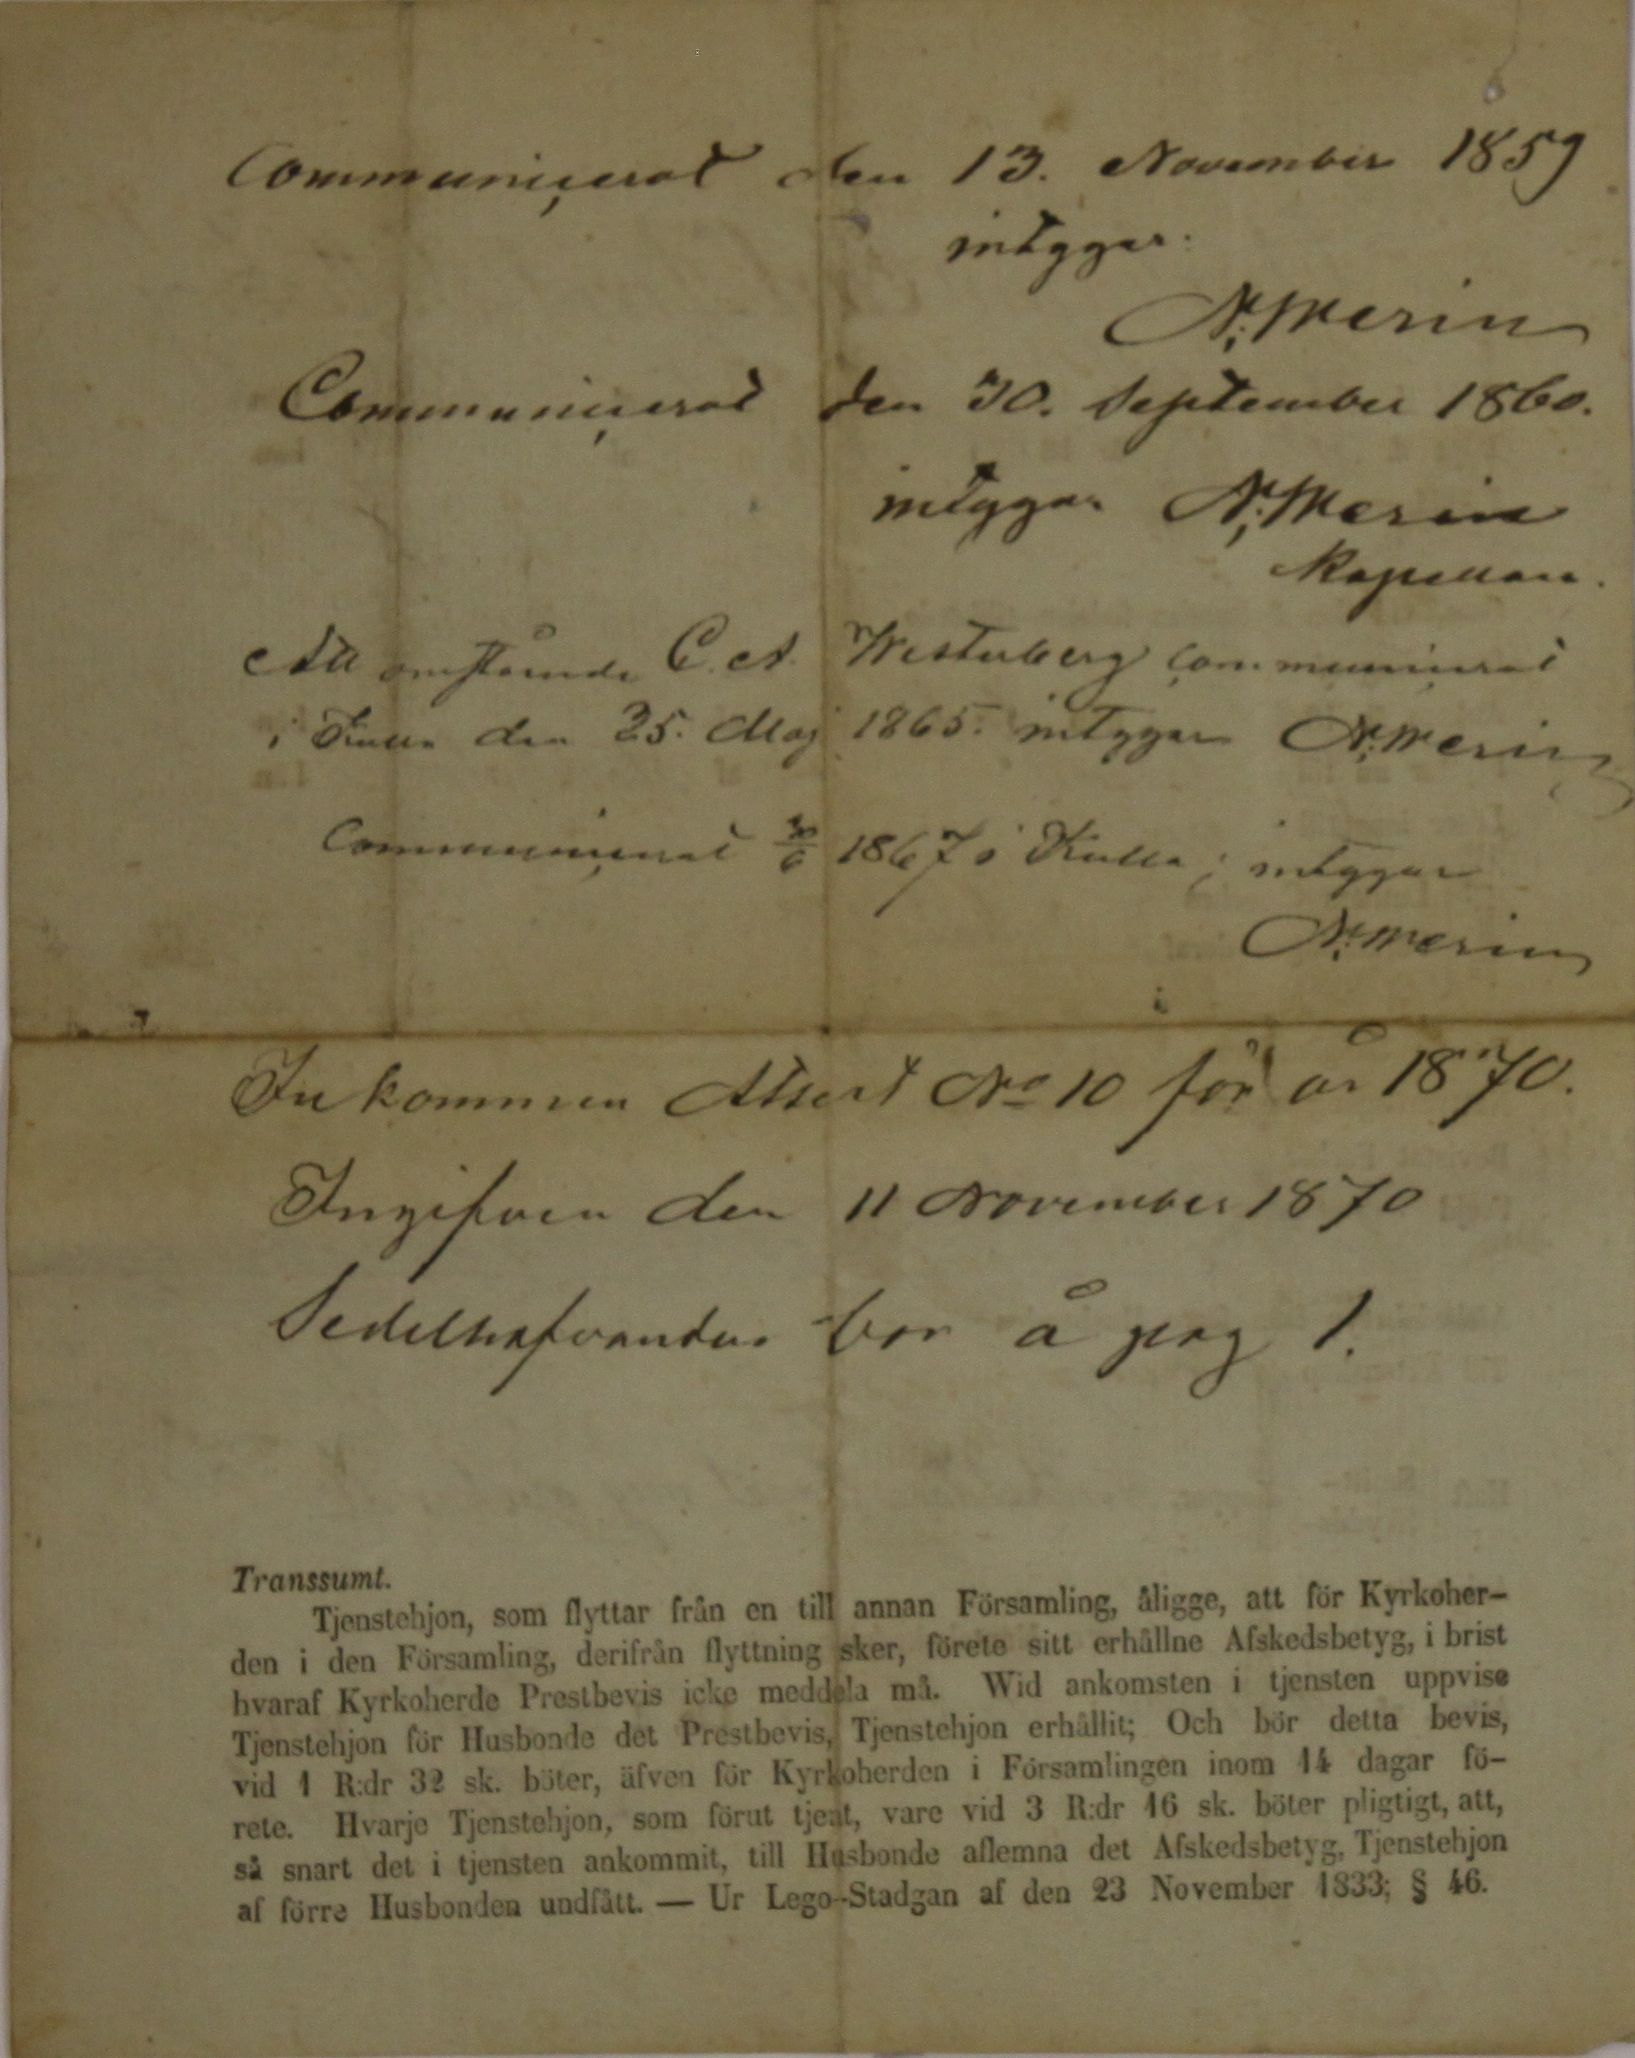 Communiçerat den 13. November 1859
intygar.
N. Merin
Communiçerat den 30. September 1860.
intygar N. Merin
Kapellan.
Att omstående C. A. Westerberg Communicerat
i Kulla den 25. Maj 1865. intygar N. Merin
Communiçerat 30/6 1867 i Kulla; intygar
N. Merin
Inkommen Attest No 10 för år 1870.
Ingifven den 11 November 1870
Sedelhafvandes bor å pag 1.
Transsumt.
Tjenstehjon, som flyttar från en till annan Församling, åligge, att för Kyrkoher-
den i den Församling, derifrån flyttning sker, förete sitt erhållne Afskedsbetyg, i brist
hvaraf Kyrkoherde Prestbevis icke meddela må. Wid ankomsten i tjensten uppvise
Tjenstehjon för Husbonde det Prestbevis, Tjenstehjon erhållit; Och bör detta bevis,
vid 1 R:dr 32 sk. böter, äfven för Kyrkoherden i Församlingen inom 14 dagar fö-
rete. Hvarje Tjenstehjon, som förut tjent, vare vid 3 R:dr 16 sk. böter pligtigt, att,
så snart det i tjensten ankommit, till Husbonde aflemna det Afskedsbetyg, Tjenstehjon
af förre Husbonden undfått. — Ur Lego-Stadgan af den 23 November 1833; § 46.